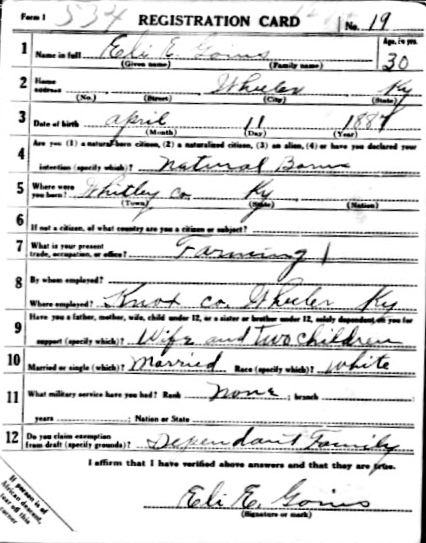 Form 1 534 REGISTRATION CARD No. 19
1 Name in full Eli E. Goins Age, in yrs. 30
(Given name) (Family name)
2 Home address Wheeler Ky
(No.) (Street) (City) (State)
3 Date of birth April 11 1887
(Month) (Day) (Year)
4 Are you (1) a natural-born citizen, (2) a naturalized citizen, (3) an alien, (4) or have you declared your
intention (specify which)? Natural Born
5 Where were you born? Whitley Co. Ky
(Town) (State) (Nation)
6 If not a citizen, of what country are you a citizen or subject?
7 What is your present trade, occupation, or office? Farming
8 By whom employed?
Where employed? Knox Co. Wheeler Ky
9 Have you a father, mother, wife, child under 12, or a sister or brother under 12, solely dependent on you for
support (specify which)? Wife and two children
10 Married or single (which)? Married Race (specify which)? White
11 What military service have you had? Rank none ; branch ;
years ; Nation or State
12 Do you claim exemption from draft (specify grounds)? Dependant Family
I affirm that I have verified above answers and that they are true.
Eli E. Goins
(Signature or mark)
If person is of
African descent,
tear off this
corner.